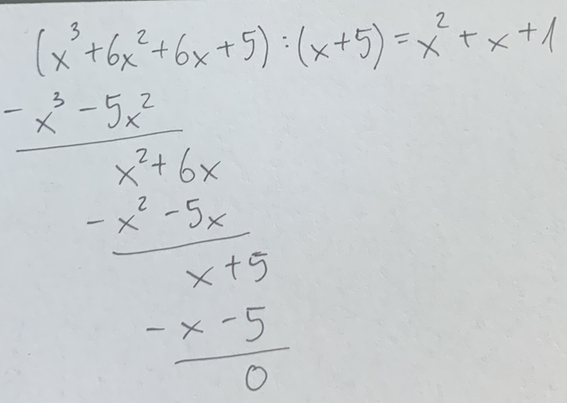 (x³+6x²+6x+5):(x+5)=x²+x+1
-x³-5x²
x²+6x
-x²-5x
x+5
-x-5
0